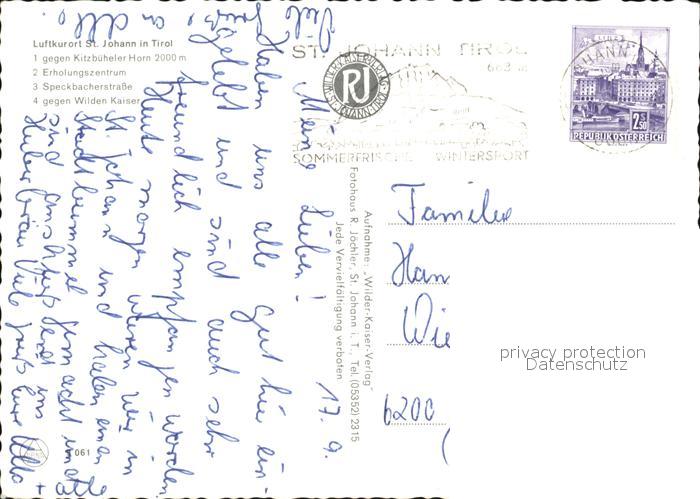 Luftkurort St. Johann in Tirol
1 gegen Kitzbüheler Horn 2000 m
2 Erholungszentrum
3 Speckbacherstraße
4 gegen Wilden Kaiser
ST. JOHANN TIROL
663 m
SOMMERFRISCHE WINTERSPORT
WILDER-KAISER-VERLAG
ST. JOHANN TIROL
RJ
2.50
REPUBLIK ÖSTERREICH
17. 9.
Meine Lieben!
Haben uns alle gut hier ein-
gelebt und sind auch sehr
freundlich empfangen worden.
Heute morgen waren wir in
St. Johann und haben einen
Stadtbummel gemacht und
sind anschließend im
Viele Grüße Eure
+
alle.
Aufnahme: „Wilder-Kaiser-Verlag"
Fotohaus R. Jöchler, St. Johann i. T., Tel. (05352) 2315
Jede Vervielfältigung verboten
Familie
Han
Wie
6200
(
061
privacy protection
Datenschutz